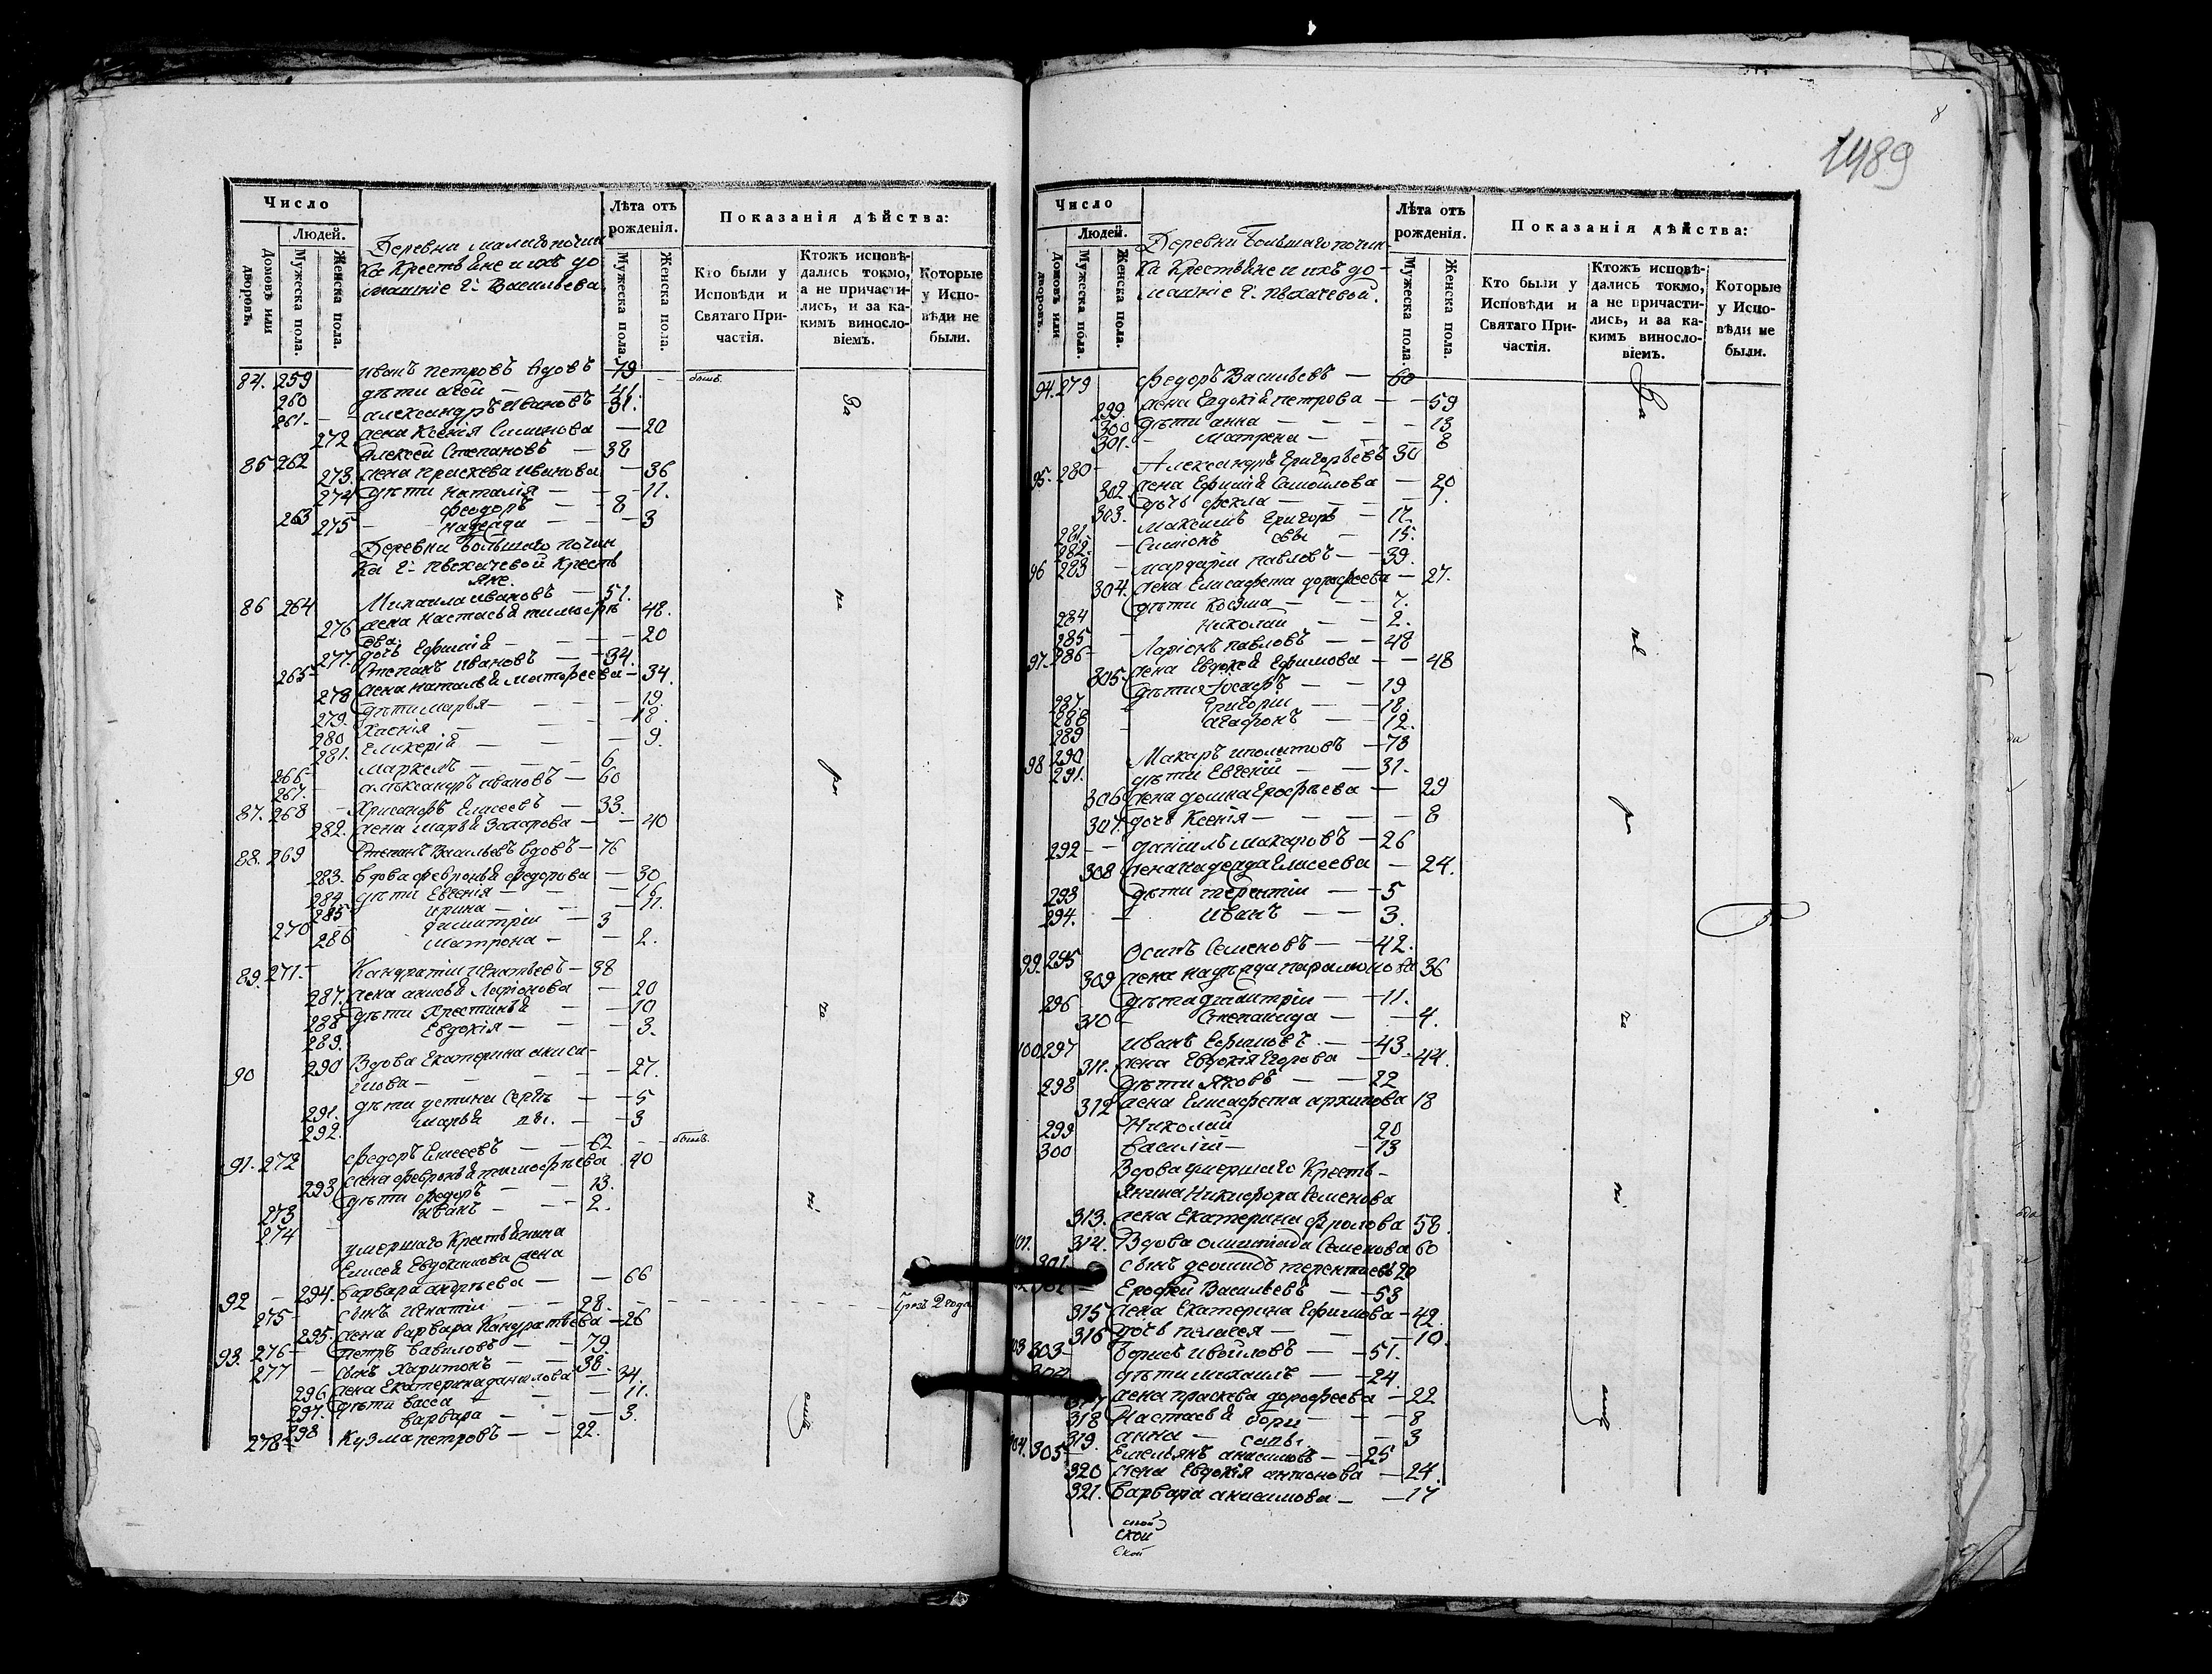 8
1489
Число
Людей.
Домовъ или дворовъ.
Мужеска пола.
Женска пола.
Деревни малаго почин
ка Крестьяне и ихъ до
машніе Г: Васильева
Лѣта отъ рожденія.
Мужеска пола.
Женска пола.
Показанія дѣйства:
Кто были у Исповѣди и Святаго Причастія.
Ктожъ исповѣдались токмо, а не причастились, и за какимъ винословіемъ.
Которые у Исповѣди не были.
84. 259 Иванъ Петровъ вдовъ 79 бытъ.
260 дѣти Агей — 41
261. Александръ Ивановъ 31.
272 жена Ксенія Симонова — 20
85 262 Алексей Степановъ — 38
273. жена Праскева Иванова — 36
274 дѣти Наталія — 11.
263 Феодоръ — 8
275 Надежда — 3
Деревни Большаго почин
ка Г: Пвхачевой Кресть
яне.
86 264 Михаила Ивановъ — 51.
276 жена Настасья Тимофѣ 48.
ева.
277. дочь Ефимія — 20
265 Степанъ Ивановъ — 34.
278 жена Наталья Матфеева — 34.
279. дѣти Марья — 19.
280 Ксенія — 18.
281. Гликерія — 9.
266 Маркелъ — 6
267. Александръ Ивановъ — 60
87. 268 Хрисанфъ Елисеевъ — 33.
282. жена Марья Захарова — 40
88. 269 Степанъ Васильевъ вдовъ — 76
283. вдова Февронья Федорова — 30
284 дѣти Евгенія — 16
285 Ирина — 11.
270 Димитріи — 3
286 Матрона — 2.
89. 271. Кандратіи Игнатьевъ — 38
287. жена Анисья Ларіонова — 20
288 дѣти Хрестинья — 10
289. Евдокія — 3.
90 290 Вдова Екатерина Аниси-
мова — 27.
291. дѣти Устинья — 5
292. Марья — 3
91. 272 Федоръ Елисеевъ — 62 бытъ.
293 жена Февронья Тимофѣева 40
273 дѣти Федоръ — 13.
274 Иванъ — 2.
умершаго Крестьянина
Елисея Евдокимова жена
92 294. Варвара Андрѣева — 66
275 сынъ Игнатіи — 28. чрезъ 2 года
295. жена Варвара Кандратьева — 26
93. 276 Петръ Вавиловъ — 79.
277 сынъ Харитонъ — 38.
296 жена Екатерина Данилова — 34.
297. дѣти Васса — 11.
298 Варвара — 3.
278 Кузма Петровъ — 22.
За
не
ра
че
ні
емъ
Число
Людей.
Домовъ или дворовъ.
Мужеска пола.
Женска пола.
Деревни Большаго почин-
ка Крестьяне и ихъ до-
машніе Г: Пвхачевой.
Лѣта отъ рожденія.
Мужеска пола.
Женска пола.
Показанія дѣйства:
Кто были у Исповѣди и Святаго Причастія.
Ктожъ исповѣдались токмо, а не причастились, и за какимъ винословіемъ.
Которые у Исповѣди не были.
94. 279 Федоръ Васильевъ — 60
299. жена Евдокія Петрова — 59
300 дѣти Анна — 13
301. Матрена — 8
95. 280 Александръ Григорьевъ 30
302. жена Ефимія Самойлова — 20
303. дочь Фекла — 7.
281. Максимъ Григорь — 17.
282. Симіонъ евы — 15.
96 283 Мардаріи Павловъ — 39.
304. жена Елисафета Дорофеева — 27.
284 дѣти Козма — 7.
285 Николаи — 2.
97. 286 Ларіонъ Павловъ — 48
305. жена Евдокея Ефимова — 48
287. дѣти Іосифъ — 19
288 Григоріи — 18.
289 Агафонъ — 12.
98 290 Макаръ Иполитовъ — 73
291. дѣти Евгеній — 31.
306 жена Домна Ерофѣева — 29
307. дочь Ксенія — 8
292 Даніилъ Макаровъ — 26
308 жена Надежда Елисеева — 24.
293 дѣти Терентіи — 5
294. Иванъ — 3.
99. 295 Осипъ Семеновъ — 42.
309 жена Надежда Парамонова 36
296 дѣти Димитріи — 11.
310 Степанида — 4.
100 297 Иванъ Ефимовъ — 43.
311. жена Евдокія Егорова — 44.
298 дѣти Яковъ — 22
312 жена Елисафета Архипова 18
299 Николай 20
300 Василій — 13
Вдова умершаго Кресть-
янина Никифора Семенова
313. жена Екатерина Фролова 58.
314. Вдова Олимпіада Семенова 60
сынъ Деомидъ Терентьевъ 20
Ерофей Васильевъ — 53
315 жена Екатерина Ефимова — 42.
316 дочь Пелагея — 10.
303 Борисъ Ивойловъ — 51.
дѣти Михаилъ — 24.
жена Праскева Дорофеева — 22
318 Настасья Бори — 8
319. Анна — совы — 3
305 Емельянъ Анисимовъ — 25
320 жена Евдокія Антонова — 24.
321. Варвара Анисимова — 17
ской
За
не
ра
че
ні
емъ